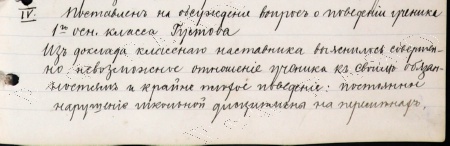 IV. Поставленъ на обсужденіе вопросъ о поведеніи ученика
1го осн. класса Гуттова
Изъ доклада класснаго наставника выяснилось совершен-
но невозможное отношеніе ученика къ своимъ обязан-
ностямъ и крайне плохое поведеніе: постоянное
нарушеніе школьной дисциплины на переменахъ,